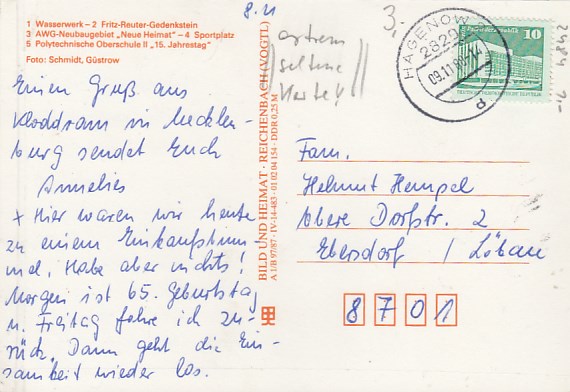 1 Wasserwerk – 2 Fritz-Reuter-Gedenkstein
3 AWG-Neubaugebiet „Neue Heimat" – 4 Sportplatz
5 Polytechnische Oberschule II „15. Jahrestag"
Foto: Schmidt, Güstrow
8. 11
Einen Gruß aus
Kloddram in Mecklen-
burg sendet Euch
Annelies
x Hier waren wir heute
zu einem Einkaufsbum-
mel, Habe aber nichts!
Morgen ist 65. Geburtstag
u. Freitag fahre ich zu-
rück. Dann geht die Ein-
samkeit wieder los.
BILD UND HEIMAT · REICHENBACH (VOGTL)
A 1/B 97/87 · IV-14-483 · 01 02 04 154 · DDR 0,25 M
extrem
seltene
Karte!!
3,-
HAGENOW
09.11.
10
2484
Fam.
Helmut Hempel
Obere Dorfstr. 2
Ebersdorf / Löbau
8 7 0 1